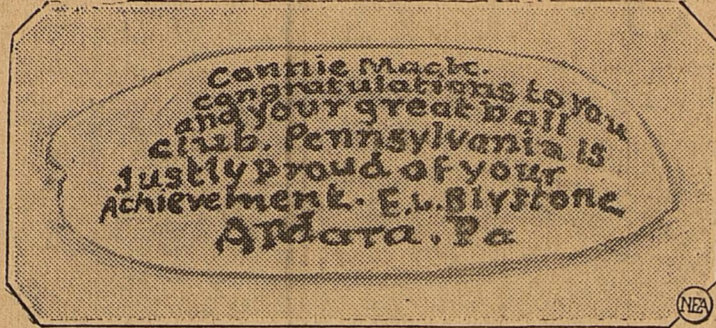 Connie Mack.
congratulations to you
and your great ball
club. Pennsylvania is
Justly proud of your
Achievement. E.L. Blystone
Ardara. Pa
NEA